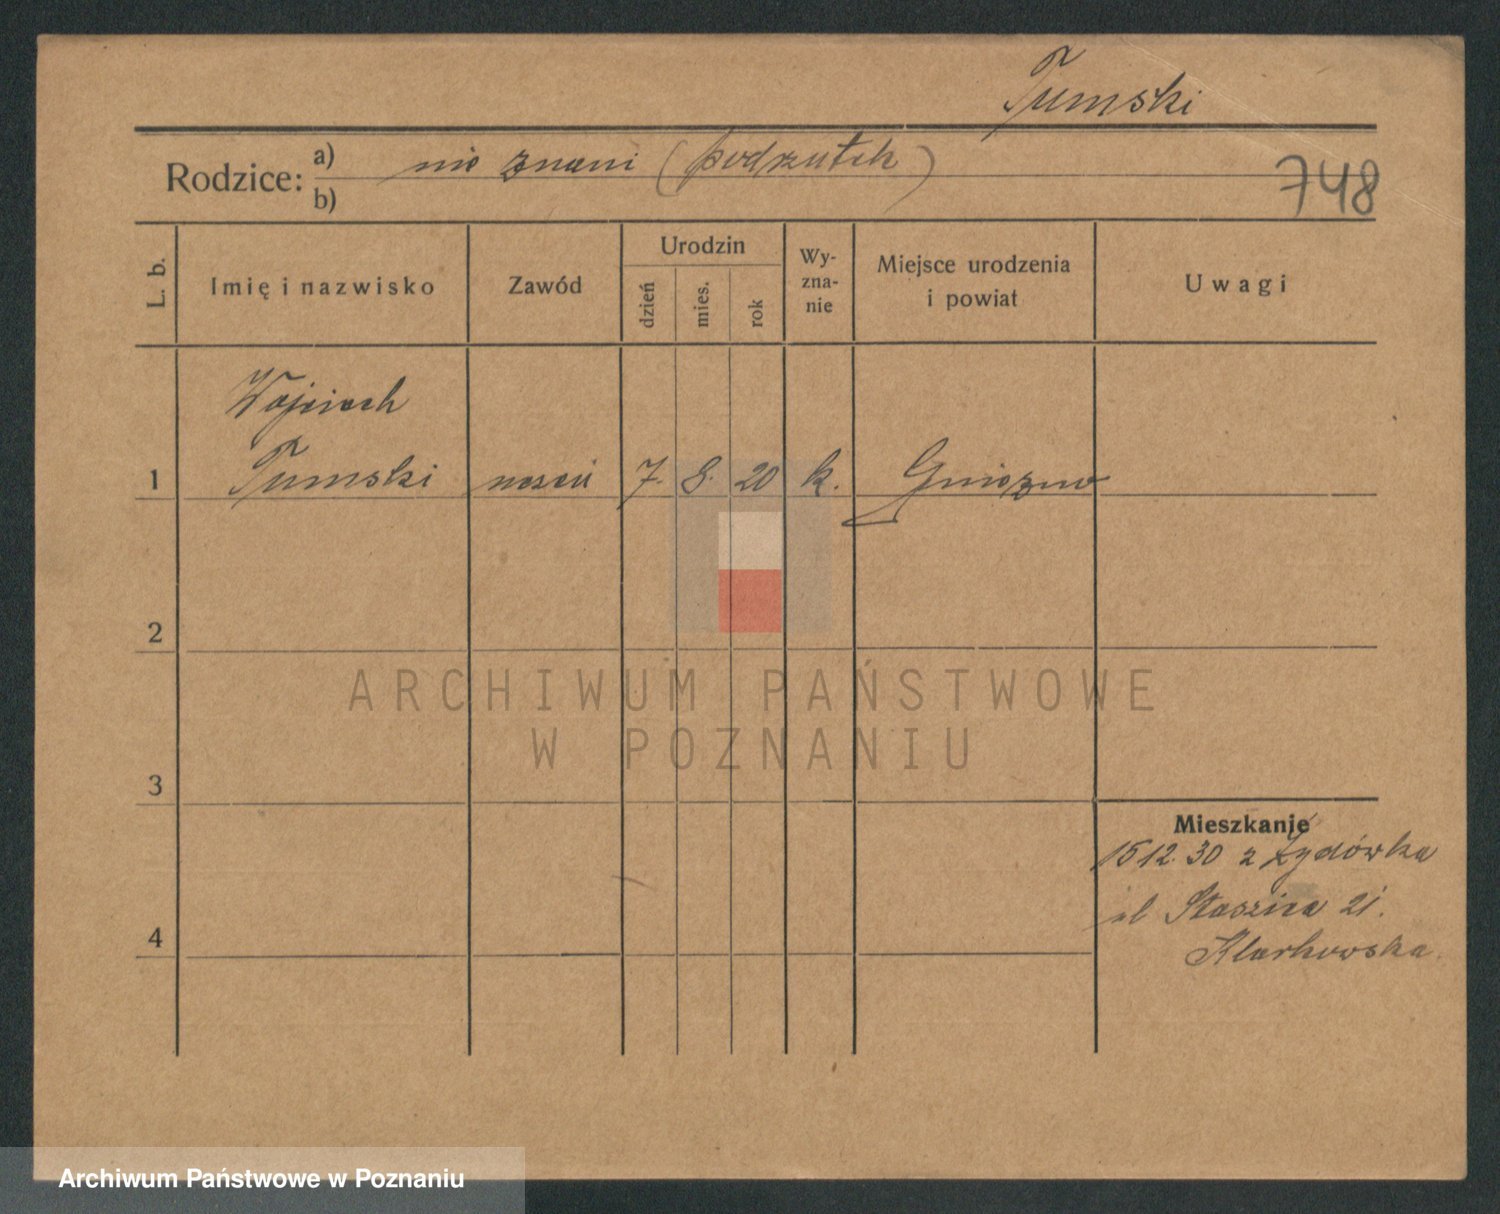 Tumski
Rodzice: a) nie znani (podrzutek)
b)
748
L. b.
Imię i nazwisko
Zawód
Urodzin
dzień
mies.
rok
Wy-
zna-
nie
Miejsce urodzenia
i powiat
Uwagi
Wojciech
1 Tumski uczeń 7. 8. 20 k. Gniezno
2
3
4
Mieszkanie
15 12. 30 z Żydówka
ul Staszica 21.
ARCHIWUM PAŃSTWOWE
W POZNANIU
Archiwum Państwowe w Poznaniu